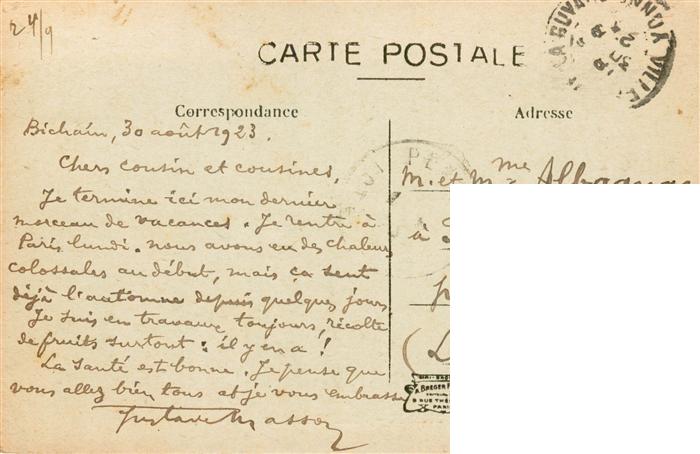 24/9
CARTE POSTALE
Correspondance
Adresse
Bichain, 30 août 1923.
Chers cousin et cousines,
Je termine ici mon dernier
morceau de vacances. Je rentre à
Paris lundi. nous avons eu des chaleurs
colossales au début, mais ça sent
déjà l'automne depuis quelques jours.
Je suis en travaux, toujours, récolte
de fruits surtout : il y en a !
La santé est bonne. Je pense que
vous allez bien tous et je vous embrasse
Gustave Masson
M. et Mme
à
A. BREGER
PARIS